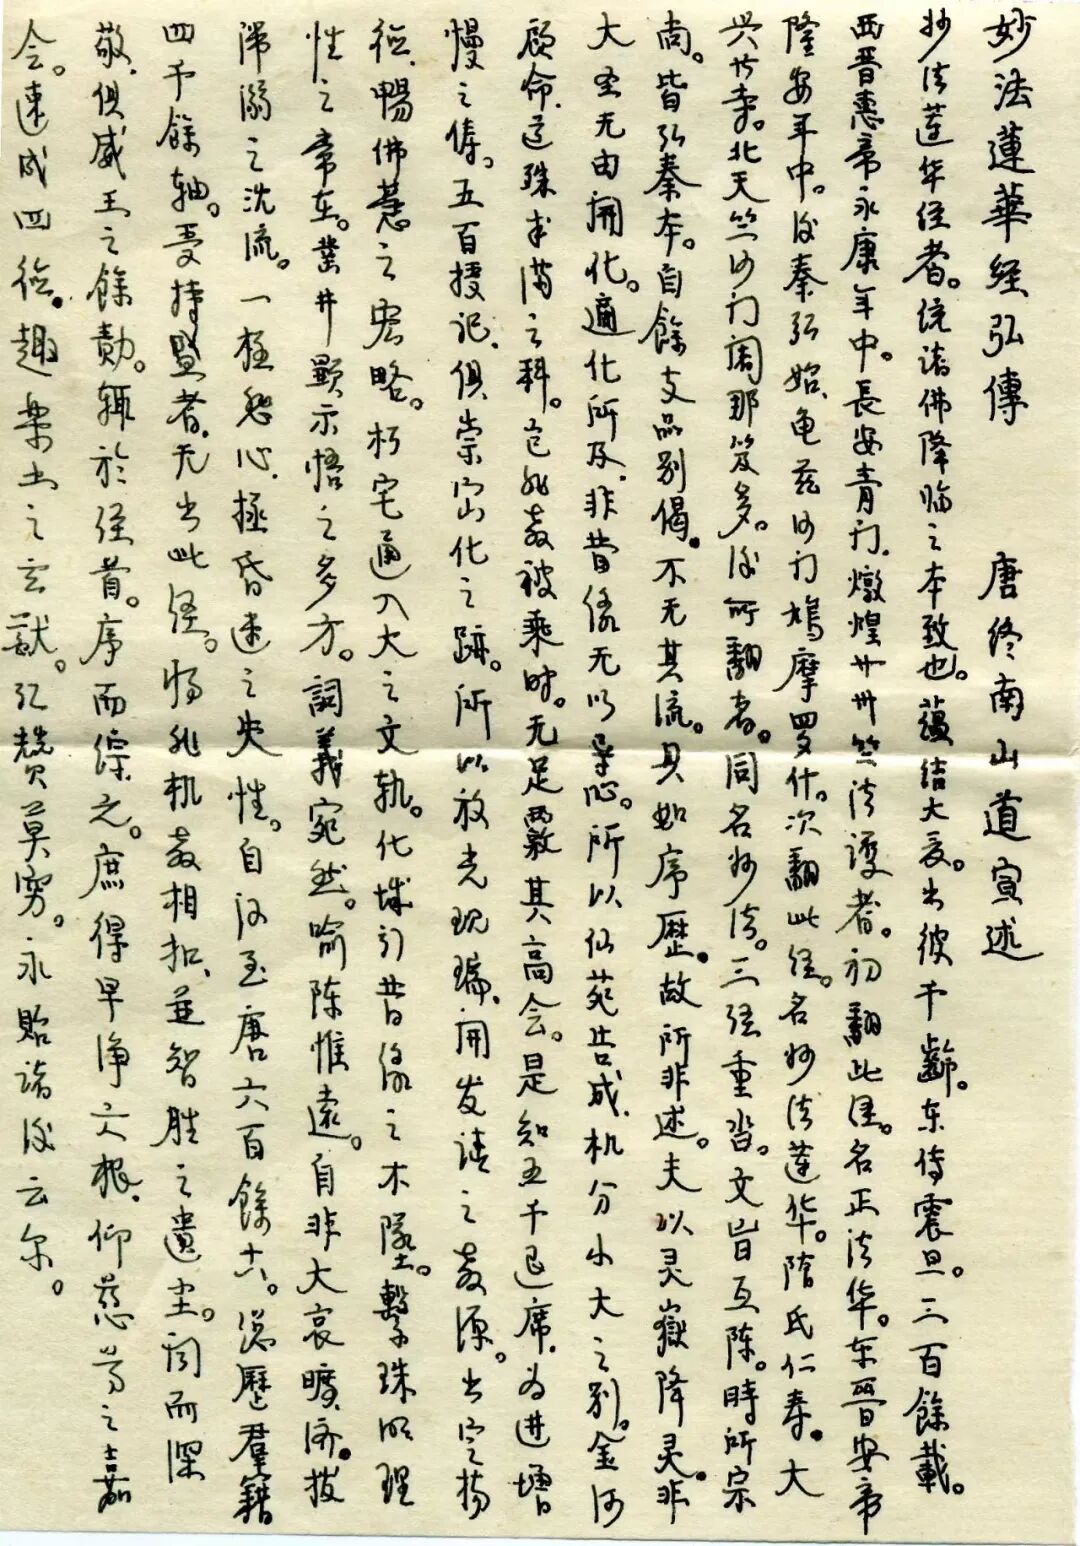 妙法蓮華经弘傳　唐终南山道宣述
妙法莲华经者。统诸佛降临之本致也。蕴结大夏。出彼千齡。东传震旦。三百餘載。
西晋惠帝永康年中。長安青门。燉煌𦬇竺法護者。初翻此经。名正法华。东晋安帝
隆安年中。後秦弘始、龟兹沙门鳩摩罗什。次翻此经。名妙法莲华。隋氏仁寿。大
兴善寺。北天竺沙门闍那笈多。後所翻者。同名妙法。三经重沓。文旨互陈。時所宗
尚。皆弘秦本。自餘支品别偈。不无其流。具如序歷。故所非述。夫以灵嶽降灵。非
大圣无由開化。適化所及、非昔缘无以导心。所以仙苑告成、机分小大之别。金河
顾命、道殊半满之科。岂非教被乘时。无足覈其高会。是知五千退席、为进增
慢之俦。五百授记、俱崇密化之跡。所以放光现瑞、開发请之教源。出定扬
德、暢佛慧之宏略。朽宅通入大之文轨。化城引昔缘之不墜。繫珠明理
性之常在。凿井顯示悟之多方。詞義宛然。喻陈惟遠。自非大哀曠济。拔
滞溺之沈流。一极悲心、拯昏迷之失性。自汉至唐六百餘六。總歷羣籍
四千餘轴。受持盛者、无出此经。将非机教相扣、並智胜之遺尘。闻而深
敬、俱威王之餘勣。輒於经首。序而綜之。庶得早净六根、仰慈尊之嘉
会。速成四德。趣樂土之玄猷。弘赞莫穷。永貽诸後云尔。